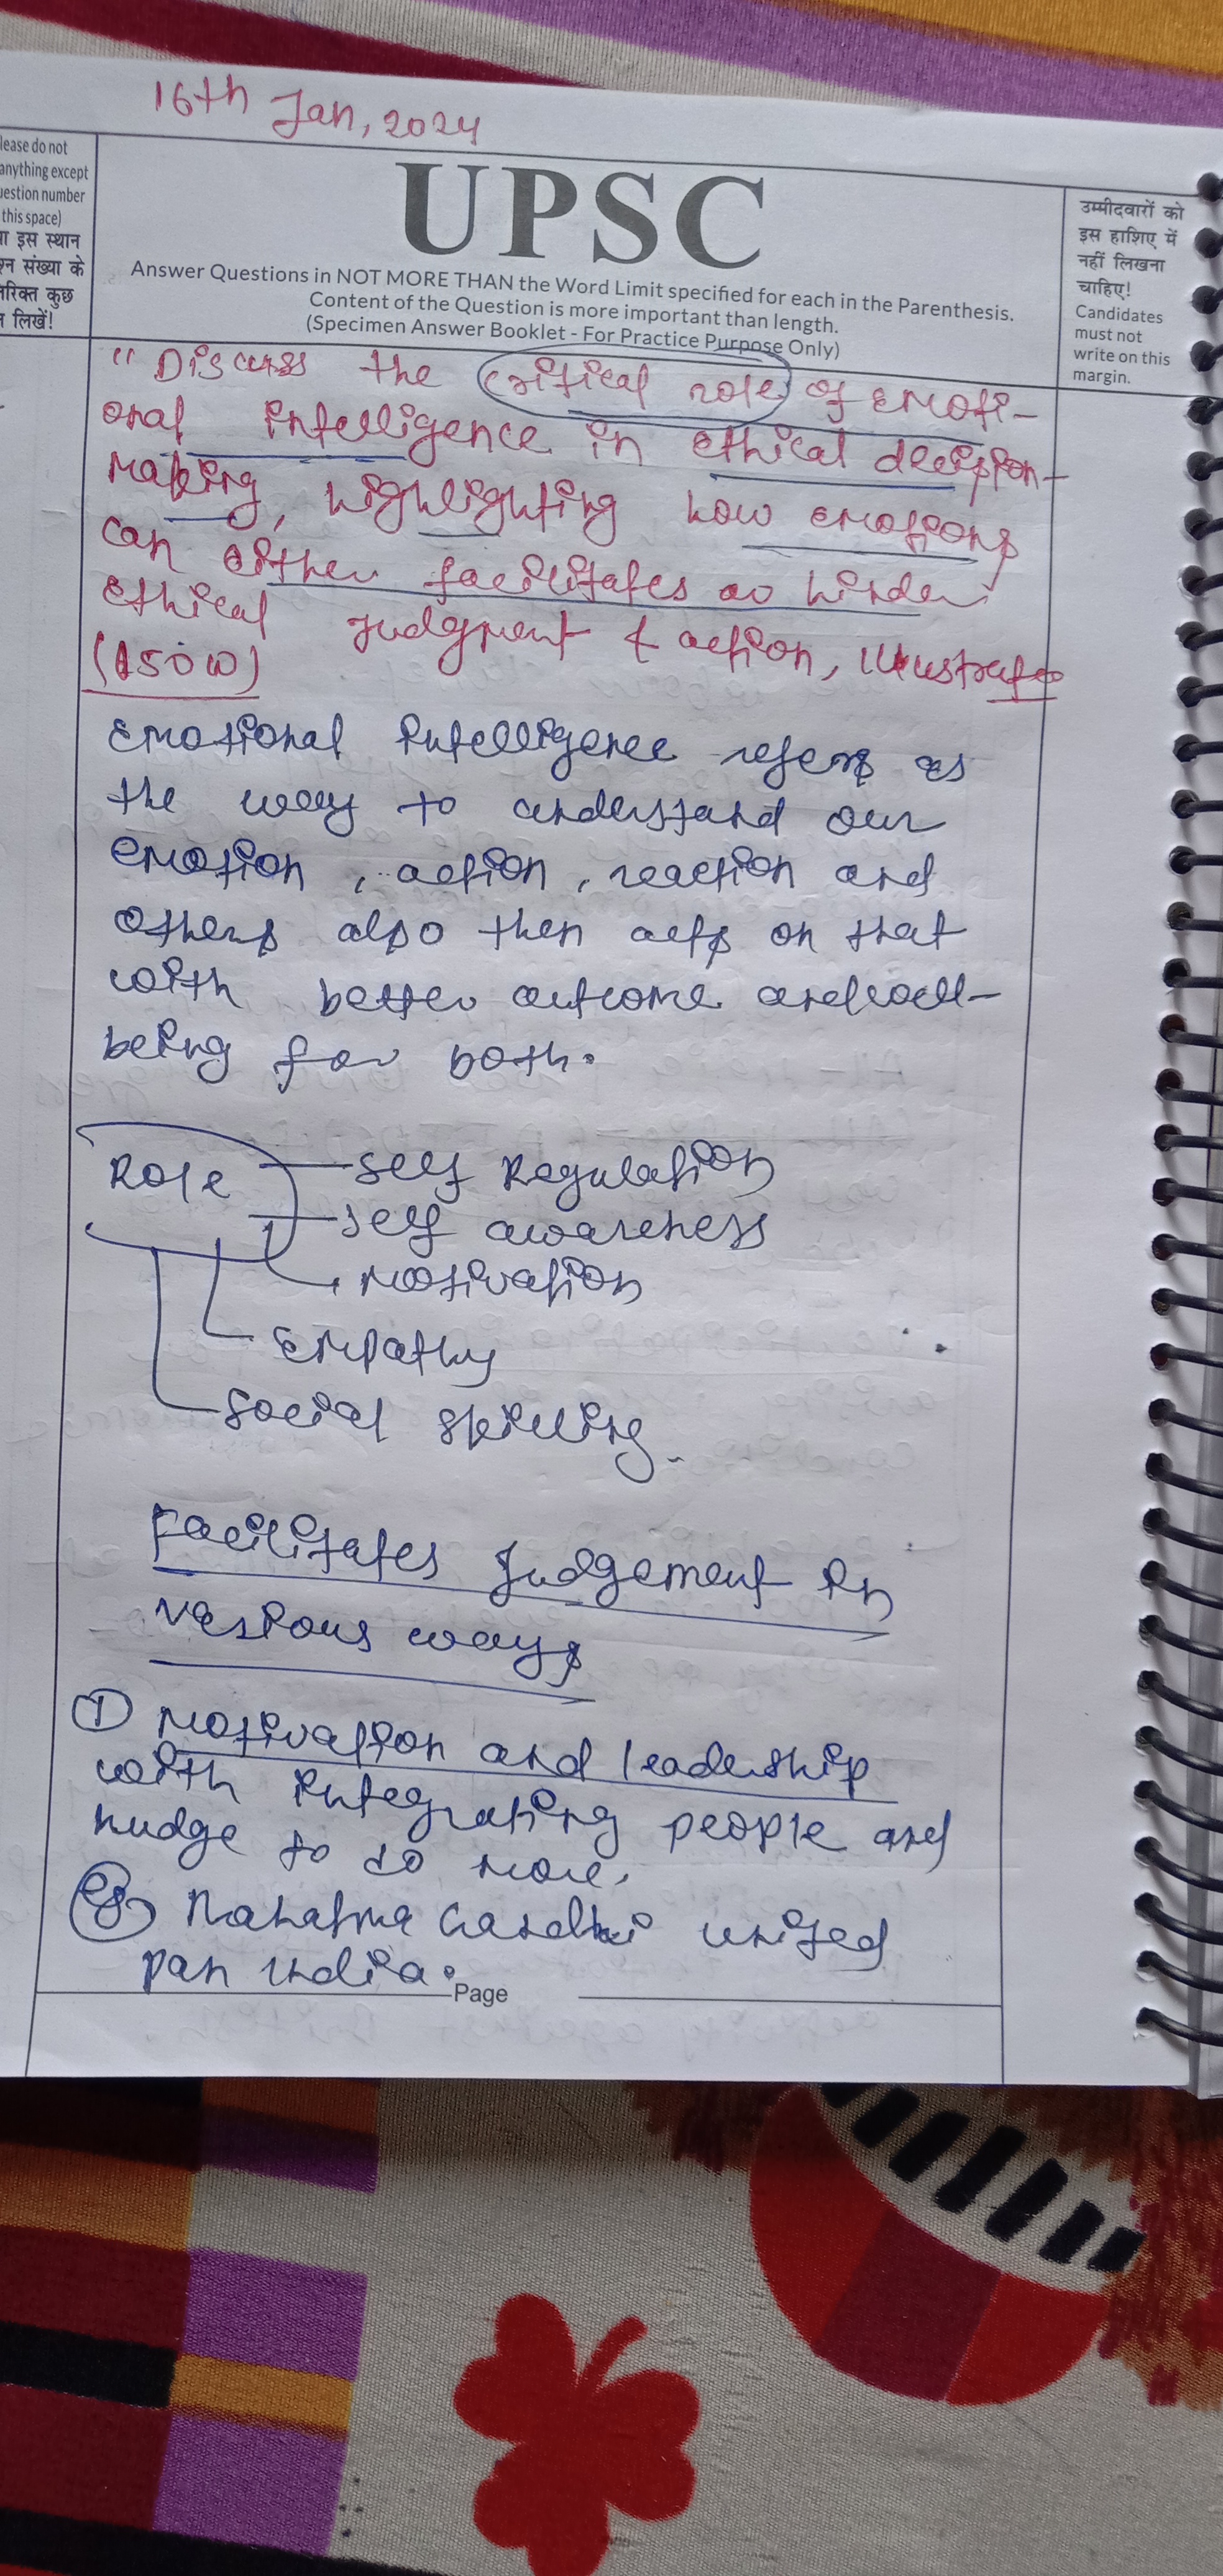 16th Jan, 2024
lease do not
anything except
uestion number
this space)
ा इस स्थान
श्न संख्या के
तिरिक्त कुछ
न लिखें!
UPSC
Answer Questions in NOT MORE THAN the Word Limit specified for each in the Parenthesis.
Content of the Question is more important than length.
(Specimen Answer Booklet - For Practice Purpose Only)
उम्मीदवारों को
इस हाशिए में
नहीं लिखना
चाहिए!
Candidates
must not
write on this
margin.
"Discuss the critical role of emoti-
onal intelligence in ethical decision-
making, highlighting how emotions
can either facilitates or hinder
ethical judgment & action, illustrate
(150W)
Emotional intelligence refers as
the way to understand our
emotion, action, reaction and
others also then acts on that
with better outcome and well-
being for both.
Role
self Regulation
self awareness
motivation
Empathy
social skilling.
Facilitates judgement in
various ways
① Motivation and leadership
with integrating people and
nudge to do more.
eg Mahatma Gandhi united
pan india.
Page